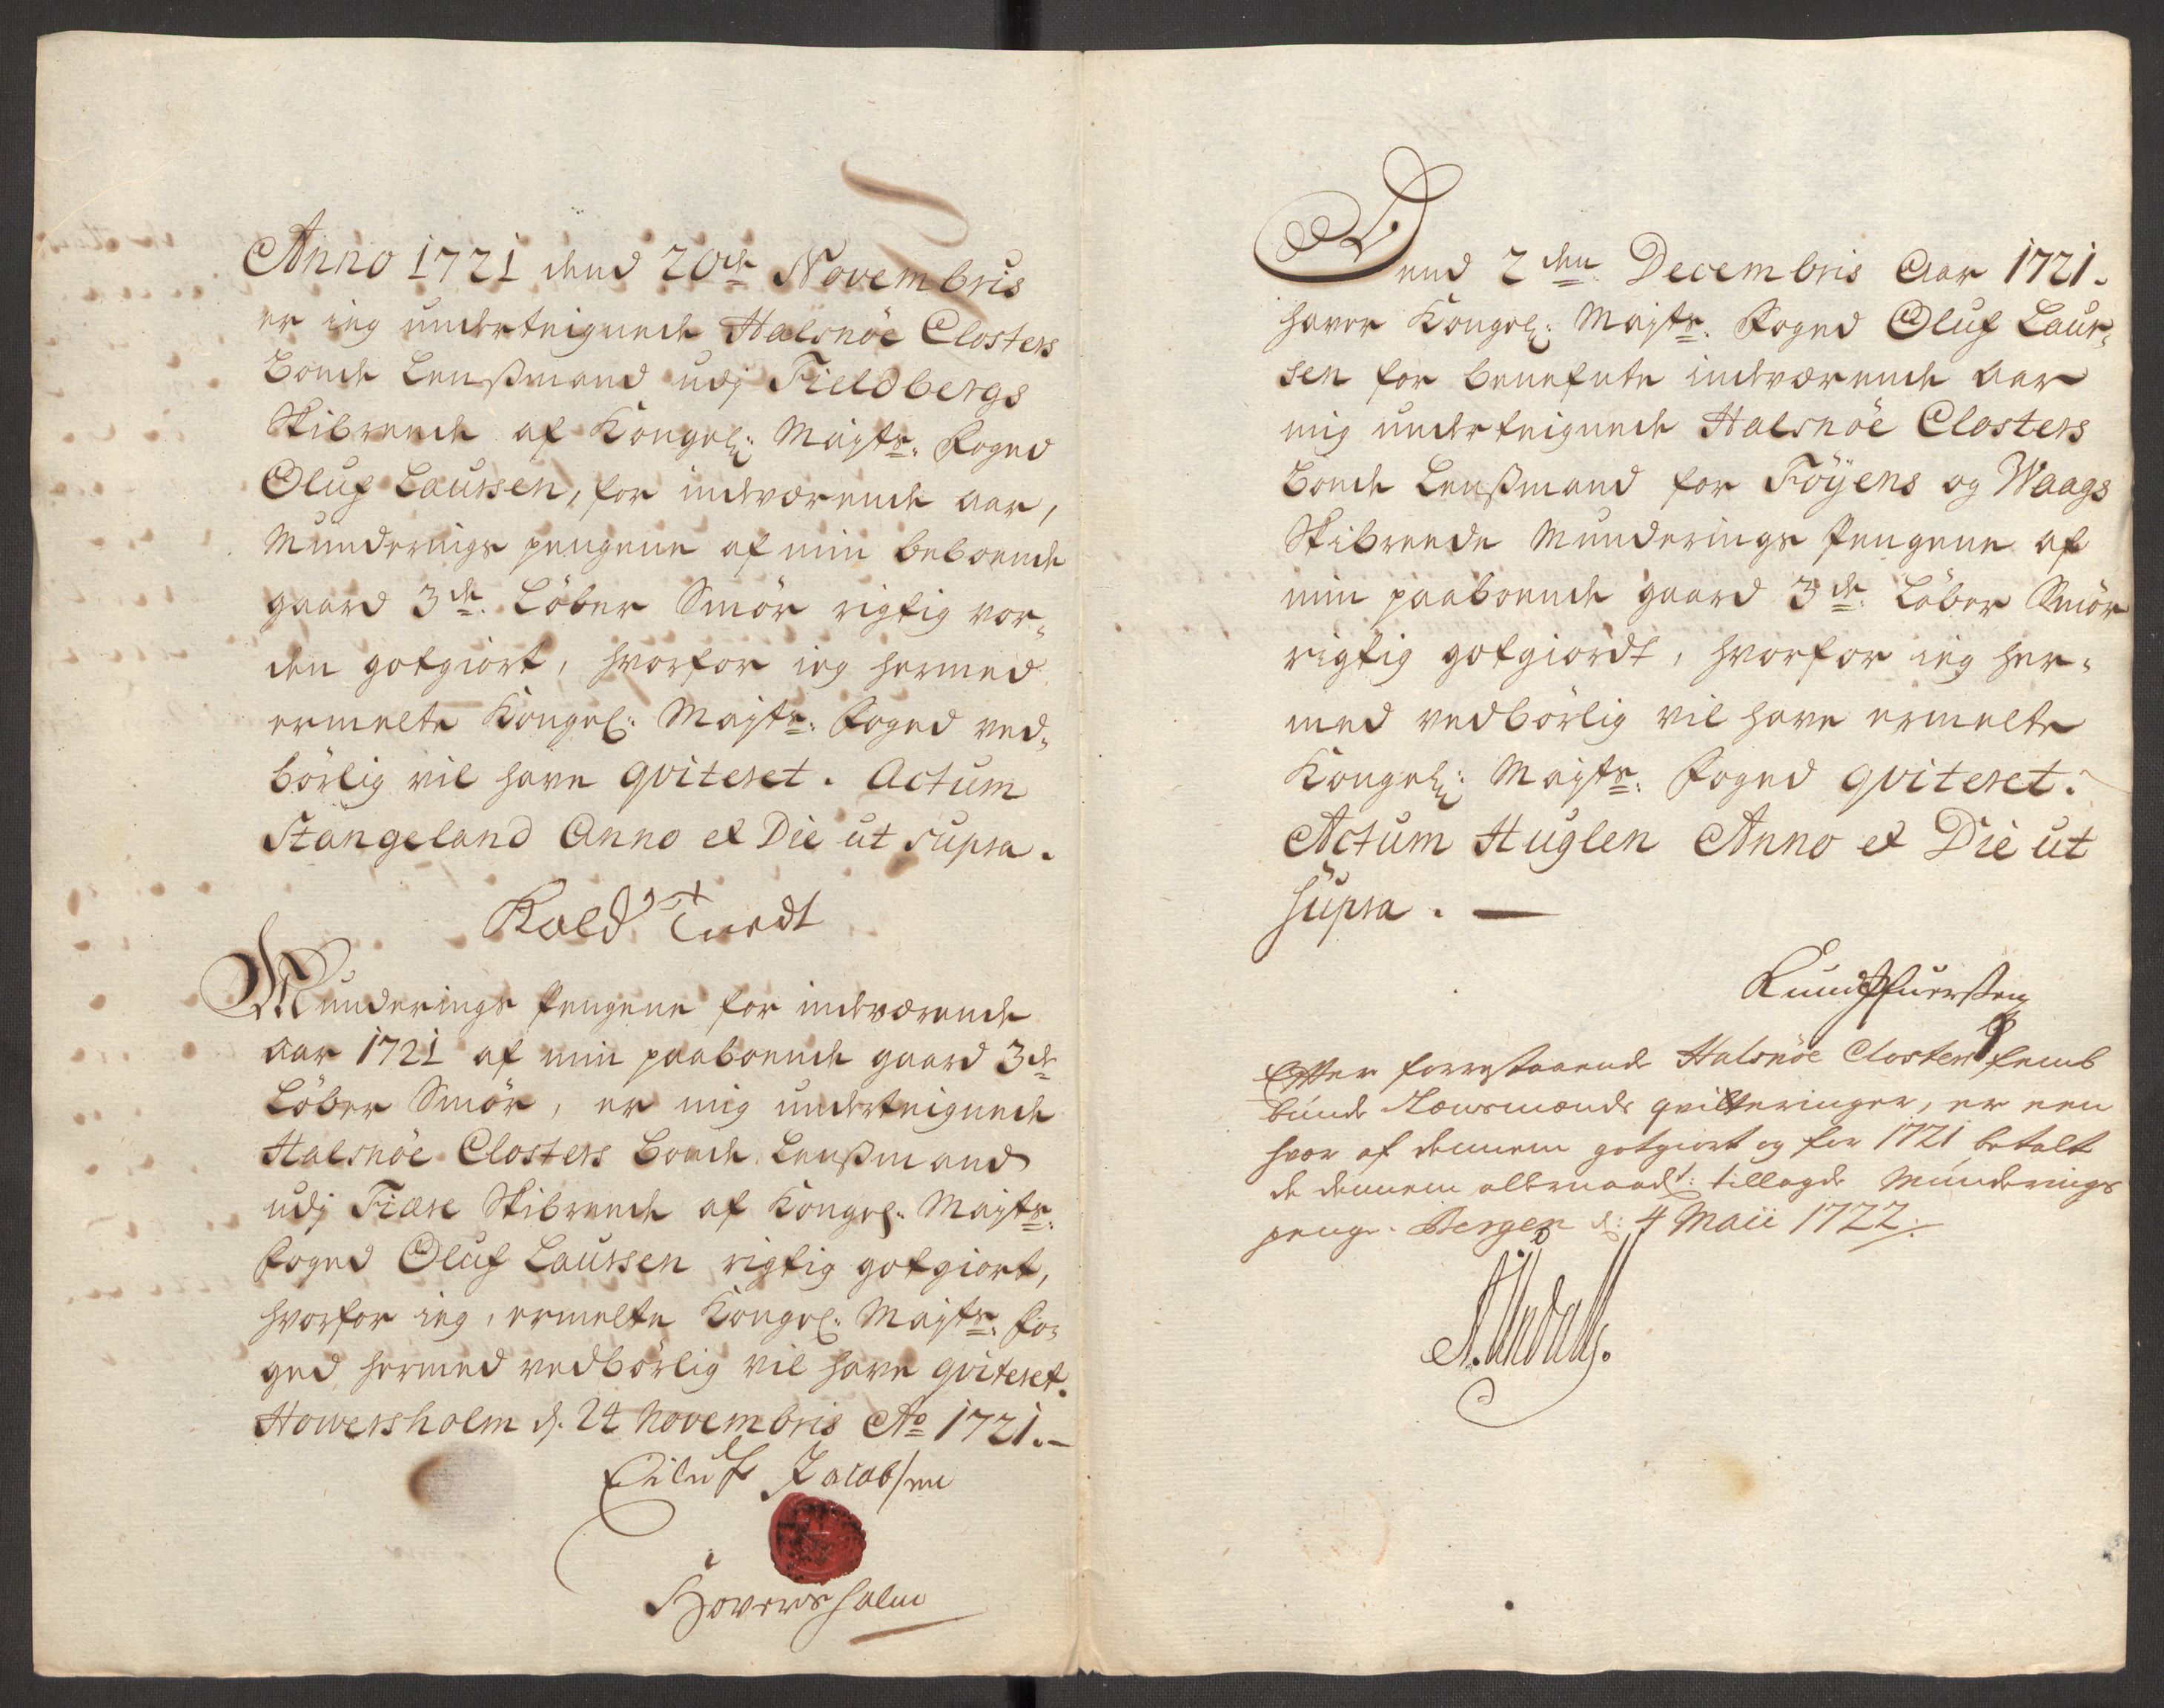 Anno 1721 dend 20de Novembris
er ieg underteignede Halsnöe Closters
Bonde Lensmand udj Fieldbergs
Skibrende af Kongel: Mayts: Foged
Oluf Laursen, for indværende aar,
Munderings pengene af min beboende
gaard 3de Löber Smör rigtig vor-
den gotgiort, hvorfor ieg hermed
ermelte Kongel: Mayts: Foged ved-
börlig vil have qviteret. Actum
Stangeland Anno et Die ut supra.
Munderings Pengene for indværende
aar 1721 af min paaboende gaard 3de
Löber Smör, er mig underteignede
Halsnöe Closters Bonde Lensmand
udj Fiære Skibrende af Kongel: Mayts:
Foged Oluf Laursen rigtig gotgiort,
hvorfor ieg, ermelte Kongel: Mayts: Fo-
ged hermed vedbörlig vil have qviteret.
Howersholm d. 24 Novembris Ao 1721.-
Eiluf Jacobsen
Höversholm
Dend 2den Decembris Aar 1721.
haver Kongel: Mayts: Foged Oluf Laur-
sen for benefnte indværende aar
mig underteignede Halsnöe Closters
Bonde Lensmand for Föyens og Waags
Skibrende Munderings Pengene af
min paaboende gaard 3de Löber Smör
rigtig gotgiordt, hvorfor ieg her-
med vedbörlig vil have ermelte
Kongel: Mayts: Foged qviteret.
Actum Huglen Anno et Die ut
supra. —
Efter forrestaaende Halsnöe Closters femb
bunde Lænsmænds qvitteringer, er een
hver af dennem gotgiort og for 1721 betalt
de dennem allernaadt: tillagde Munderings
penge. Bergen d: 4 Maii 1722.